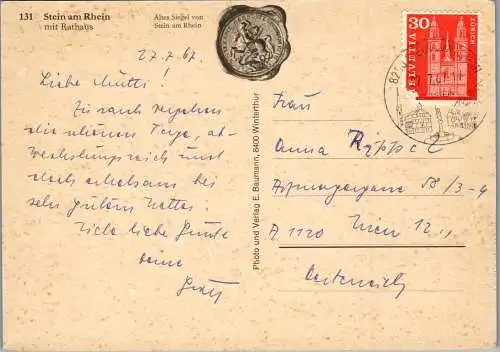 131 Stein am Rhein
mit Rathaus
Altes Siegel von
Stein am Rhein
27.7.67.
Liebe Mutti!
Zu rasch vergehen
die schönen Tage, ab-
wechslungsreich und
doch erholsam bei
sehr gutem Wetter.
Viele liebe Grüße
Deine
Photo und Verlag E. Baumann, 8400 Winterthur
HELVETIA
30
ZÜRICH
Frau
Anna
A 1120 Wien 12
Oesterreich